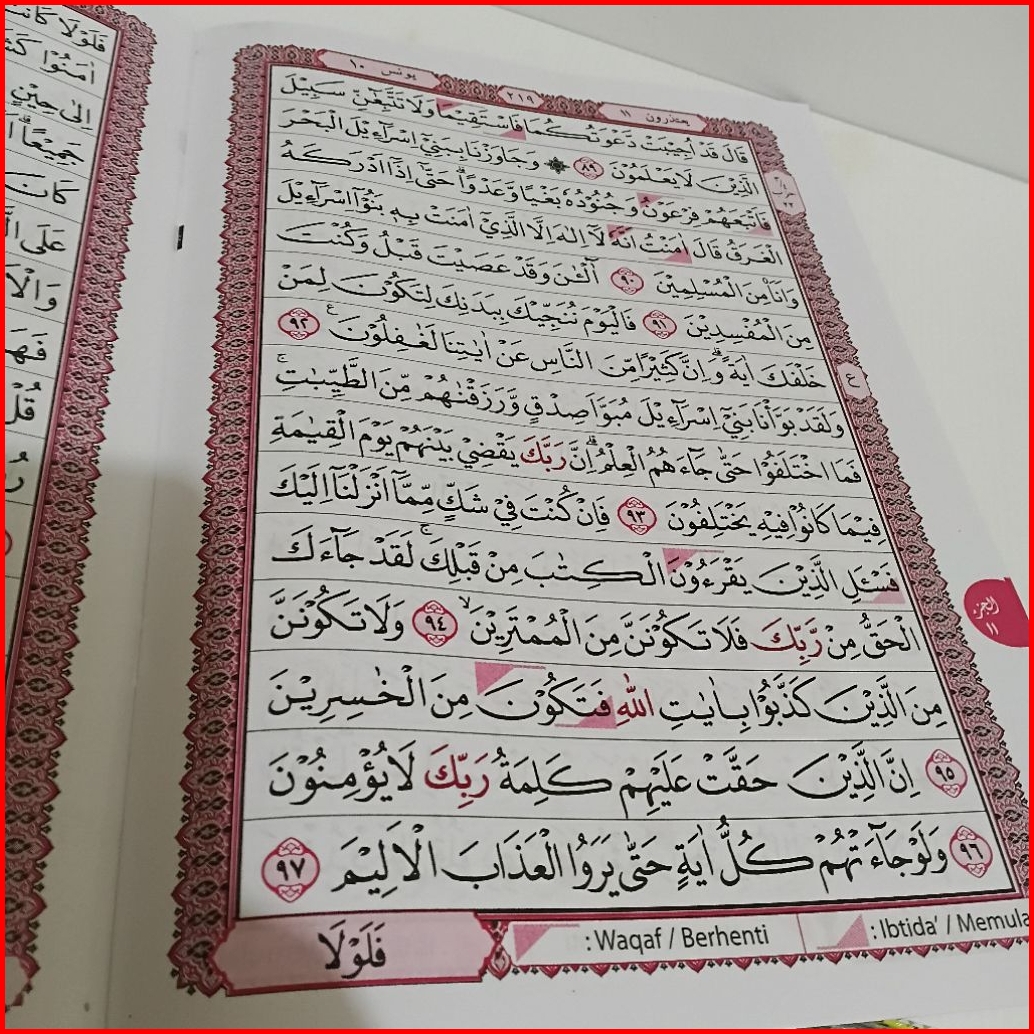 يونس ١٠
٢١٩
يعتذرون ١١
قَالَ قَدْ اُجِيْبَتْ دَّعْوَتُكُمَا فَاسْتَقِيْمَا وَلَا تَتَّبِعٰۤنِّ سَبِيْلَ
الَّذِيْنَ لَا يَعْلَمُوْنَ ٨٩ ۞ وَجَاوَزْنَا بِبَنِيْٓ اِسْرَاۤءِيْلَ الْبَحْرَ
فَاَتْبَعَهُمْ فِرْعَوْنُ وَجُنُوْدُهٗ بَغْيًا وَّعَدْوًاۗ حَتّٰىٓ اِذَآ اَدْرَكَهُ
الْغَرَقُ قَالَ اٰمَنْتُ اَنَّهٗ لَآ اِلٰهَ اِلَّا الَّذِيْٓ اٰمَنَتْ بِهٖ بَنُوْٓا اِسْرَاۤءِيْلَ
وَاَنَا۠ مِنَ الْمُسْلِمِيْنَ ٩٠ اٰۤلْـٰٔنَ وَقَدْ عَصَيْتَ قَبْلُ وَكُنْتَ
مِنَ الْمُفْسِدِيْنَ ٩١ فَالْيَوْمَ نُنَجِّيْكَ بِبَدَنِكَ لِتَكُوْنَ لِمَنْ
خَلْفَكَ اٰيَةً ۗوَاِنَّ كَثِيْرًا مِّنَ النَّاسِ عَنْ اٰيٰتِنَا لَغٰفِلُوْنَ ࣖ ٩٢
وَلَقَدْ بَوَّأْنَا بَنِيْٓ اِسْرَاۤءِيْلَ مُبَوَّاَ صِدْقٍ وَّرَزَقْنٰهُمْ مِّنَ الطَّيِّبٰتِ ۚ
فَمَا اخْتَلَفُوْا حَتّٰى جَاۤءَهُمُ الْعِلْمُ ۗاِنَّ رَبَّكَ يَقْضِيْ بَيْنَهُمْ يَوْمَ الْقِيٰمَةِ
فِيْمَا كَانُوْا فِيْهِ يَخْتَلِفُوْنَ ٩٣ فَاِنْ كُنْتَ فِيْ شَكٍّ مِّمَّآ اَنْزَلْنَآ اِلَيْكَ
فَسْـَٔلِ الَّذِيْنَ يَقْرَءُوْنَ الْكِتٰبَ مِنْ قَبْلِكَ ۚ لَقَدْ جَاۤءَكَ
الْحَقُّ مِنْ رَّبِّكَ فَلَا تَكُوْنَنَّ مِنَ الْمُمْتَرِيْنَ ۙ ٩٤ وَلَا تَكُوْنَنَّ
مِنَ الَّذِيْنَ كَذَّبُوْا بِاٰيٰتِ اللّٰهِ فَتَكُوْنَ مِنَ الْخٰسِرِيْنَ
٩٥ اِنَّ الَّذِيْنَ حَقَّتْ عَلَيْهِمْ كَلِمَةُ رَبِّكَ لَا يُؤْمِنُوْنَ
٩٦ وَلَوْ جَاۤءَتْهُمْ كُلُّ اٰيَةٍ حَتّٰى يَرَوُا الْعَذَابَ الْاَلِيْمَ ٩٧
فَلَوْلَا
: Waqaf / Berhenti
: Ibtida' / Memula
الجزء
١١
فَلَوْلَا
اٰمَنُوْا
اِلٰى حِيْنٍ
جَمِيْعًا
كَانَ
عَلَى